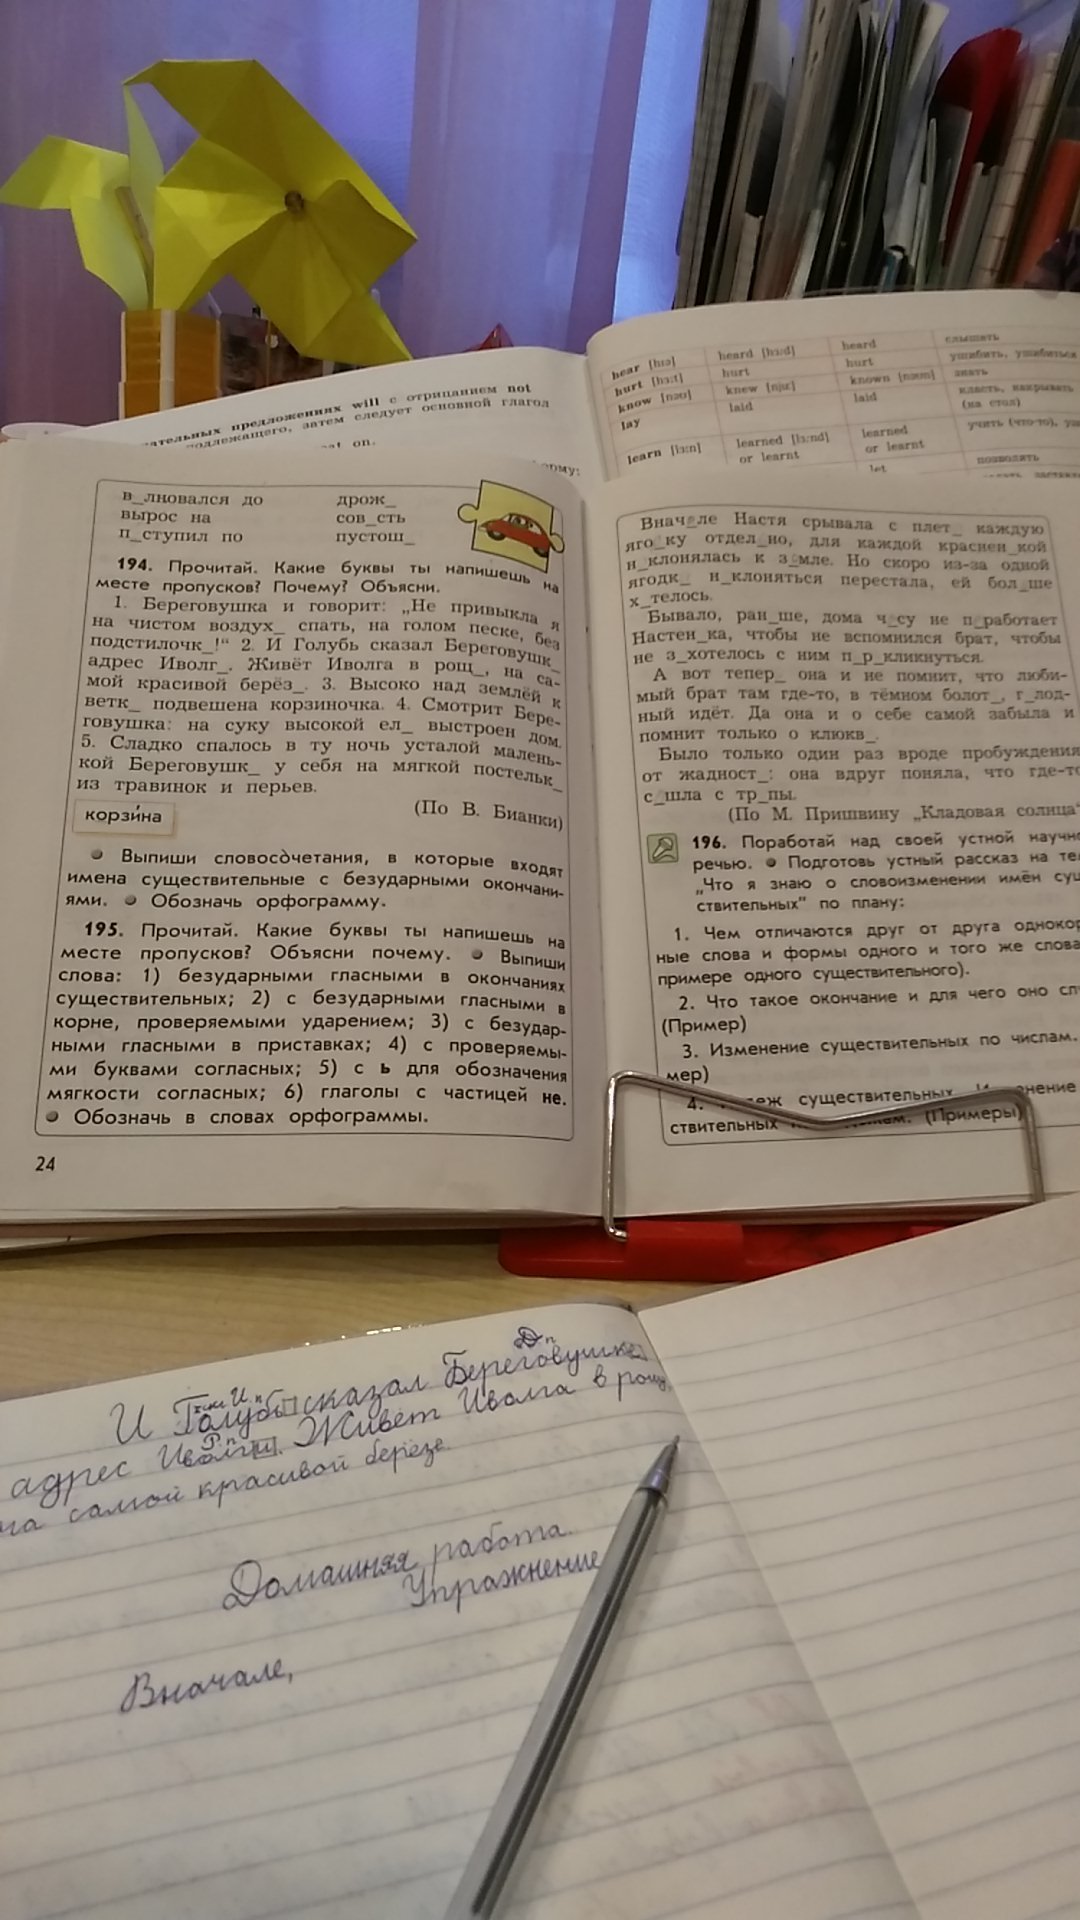 ательных предложениях will с отрицанием not
подлежащего, затем следует основной глагол
hear [hɪə] heard [hɜ:d] heard слышать
hurt [hɜ:t] hurt hurt ушибить, ушибиться
know [nəʊ] knew [nju:] known [nəʊn] знать
lay laid laid класть, накрывать
(на стол)
learn [lɜ:n] learned [lɜ:nd] learned учить (что-то),
or learnt or learnt
let позволять
в_лновался до дрож_
вырос на сов_сть
п_ступил по пустош_
194. Прочитай. Какие буквы ты напишешь на
месте пропусков? Почему? Объясни.
1. Береговушка и говорит: „Не привыкла я
на чистом воздух_ спать, на голом песке, без
подстилочк_!“ 2. И Голубь сказал Береговушк_
адрес Иволг_. Живёт Иволга в рощ_, на са-
мой красивой берёз_. 3. Высоко над землёй к
ветк_ подвешена корзиночка. 4. Смотрит Бере-
говушка: на суку высокой ел_ выстроен дом.
5. Сладко спалось в ту ночь усталой малень-
кой Береговушк_ у себя на мягкой постельк_
из травинок и перьев.
(По В. Бианки)
корзи́на
Выпиши словосочетания, в которые входят
имена существительные с безударными окончани-
ями. ● Обозначь орфограмму.
195. Прочитай. Какие буквы ты напишешь на
месте пропусков? Объясни почему. ● Выпиши
слова: 1) безударными гласными в окончаниях
существительных; 2) с безударными гласными в
корне, проверяемыми ударением; 3) с безудар-
ными гласными в приставках; 4) с проверяемы-
ми буквами согласных; 5) с ь для обозначения
мягкости согласных; 6) глаголы с частицей не.
● Обозначь в словах орфограммы.
24
Внач_ле Настя срывала с плет_ каждую
яго_ку отдел_но, для каждой краснен_кой
н_клонялась к з_мле. Но скоро из-за одной
ягодк_ н_клоняться перестала, ей бол_ше
х_телось.
Бывало, ран_ше, дома ч_су не п_работает
Настен_ка, чтобы не вспомнился брат, чтобы
не з_хотелось с ним п_р_кликнуться.
А вот тепер_ она и не помнит, что люби-
мый брат там где-то, в тёмном болот_, г_лод-
ный идёт. Да она и о себе самой забыла и
помнит только о клюкв_.
Было только один раз вроде пробуждения
от жадност_: она вдруг поняла, что где-то
с_шла с тр_пы.
(По М. Пришвину „Кладовая солнца“
196. Поработай над своей устной научно
речью. ● Подготовь устный рассказ на те
„Что я знаю о словоизменении имён сущ
ствительных“ по плану:
1. Чем отличаются друг от друга однокор
ные слова и формы одного и того же слова
примере одного существительного).
2. Что такое окончание и для чего оно сл
(Пример)
3. Изменение существительных по числам.
мер)
4. существительных.
ствительных (Примеры)
И Голубь сказал Береговушке
адрес Иволги. Живёт Иволга в рощ
на самой красивой берёзе.
Домашняя работа.
Упражнение
Вначале,